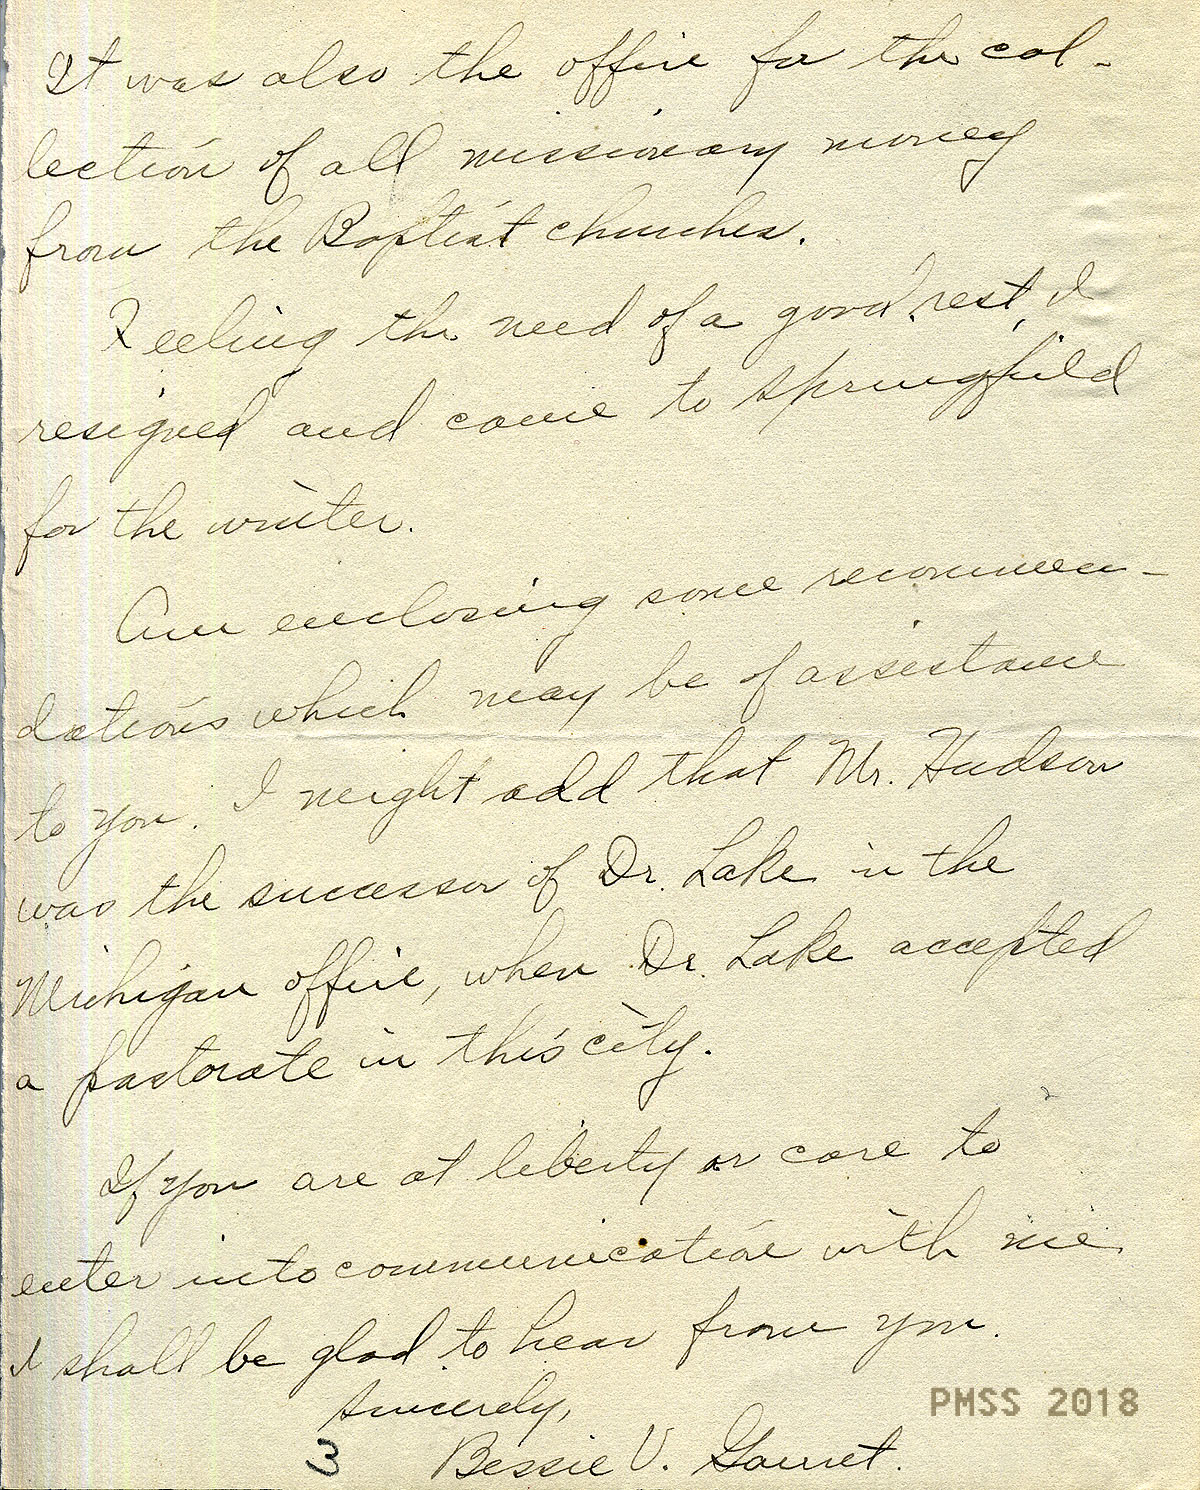 It was also the office for the col-
lection of all missionary money
from the Baptist churches.
Feeling the need of a good rest, I
resigned and came to Springfield
for the winter.
Am enclosing some recommen-
dations which may be of assistance
to you. I might add that Mr. Hudson
was the successor of Dr. Lake in the
Michigan office, when Dr. Lake accepted
a pastorate in this city.
If you are at liberty or care to
enter into communication with me
I shall be glad to hear from you.
Sincerely,
PMSS 2018
3 Bessie V.